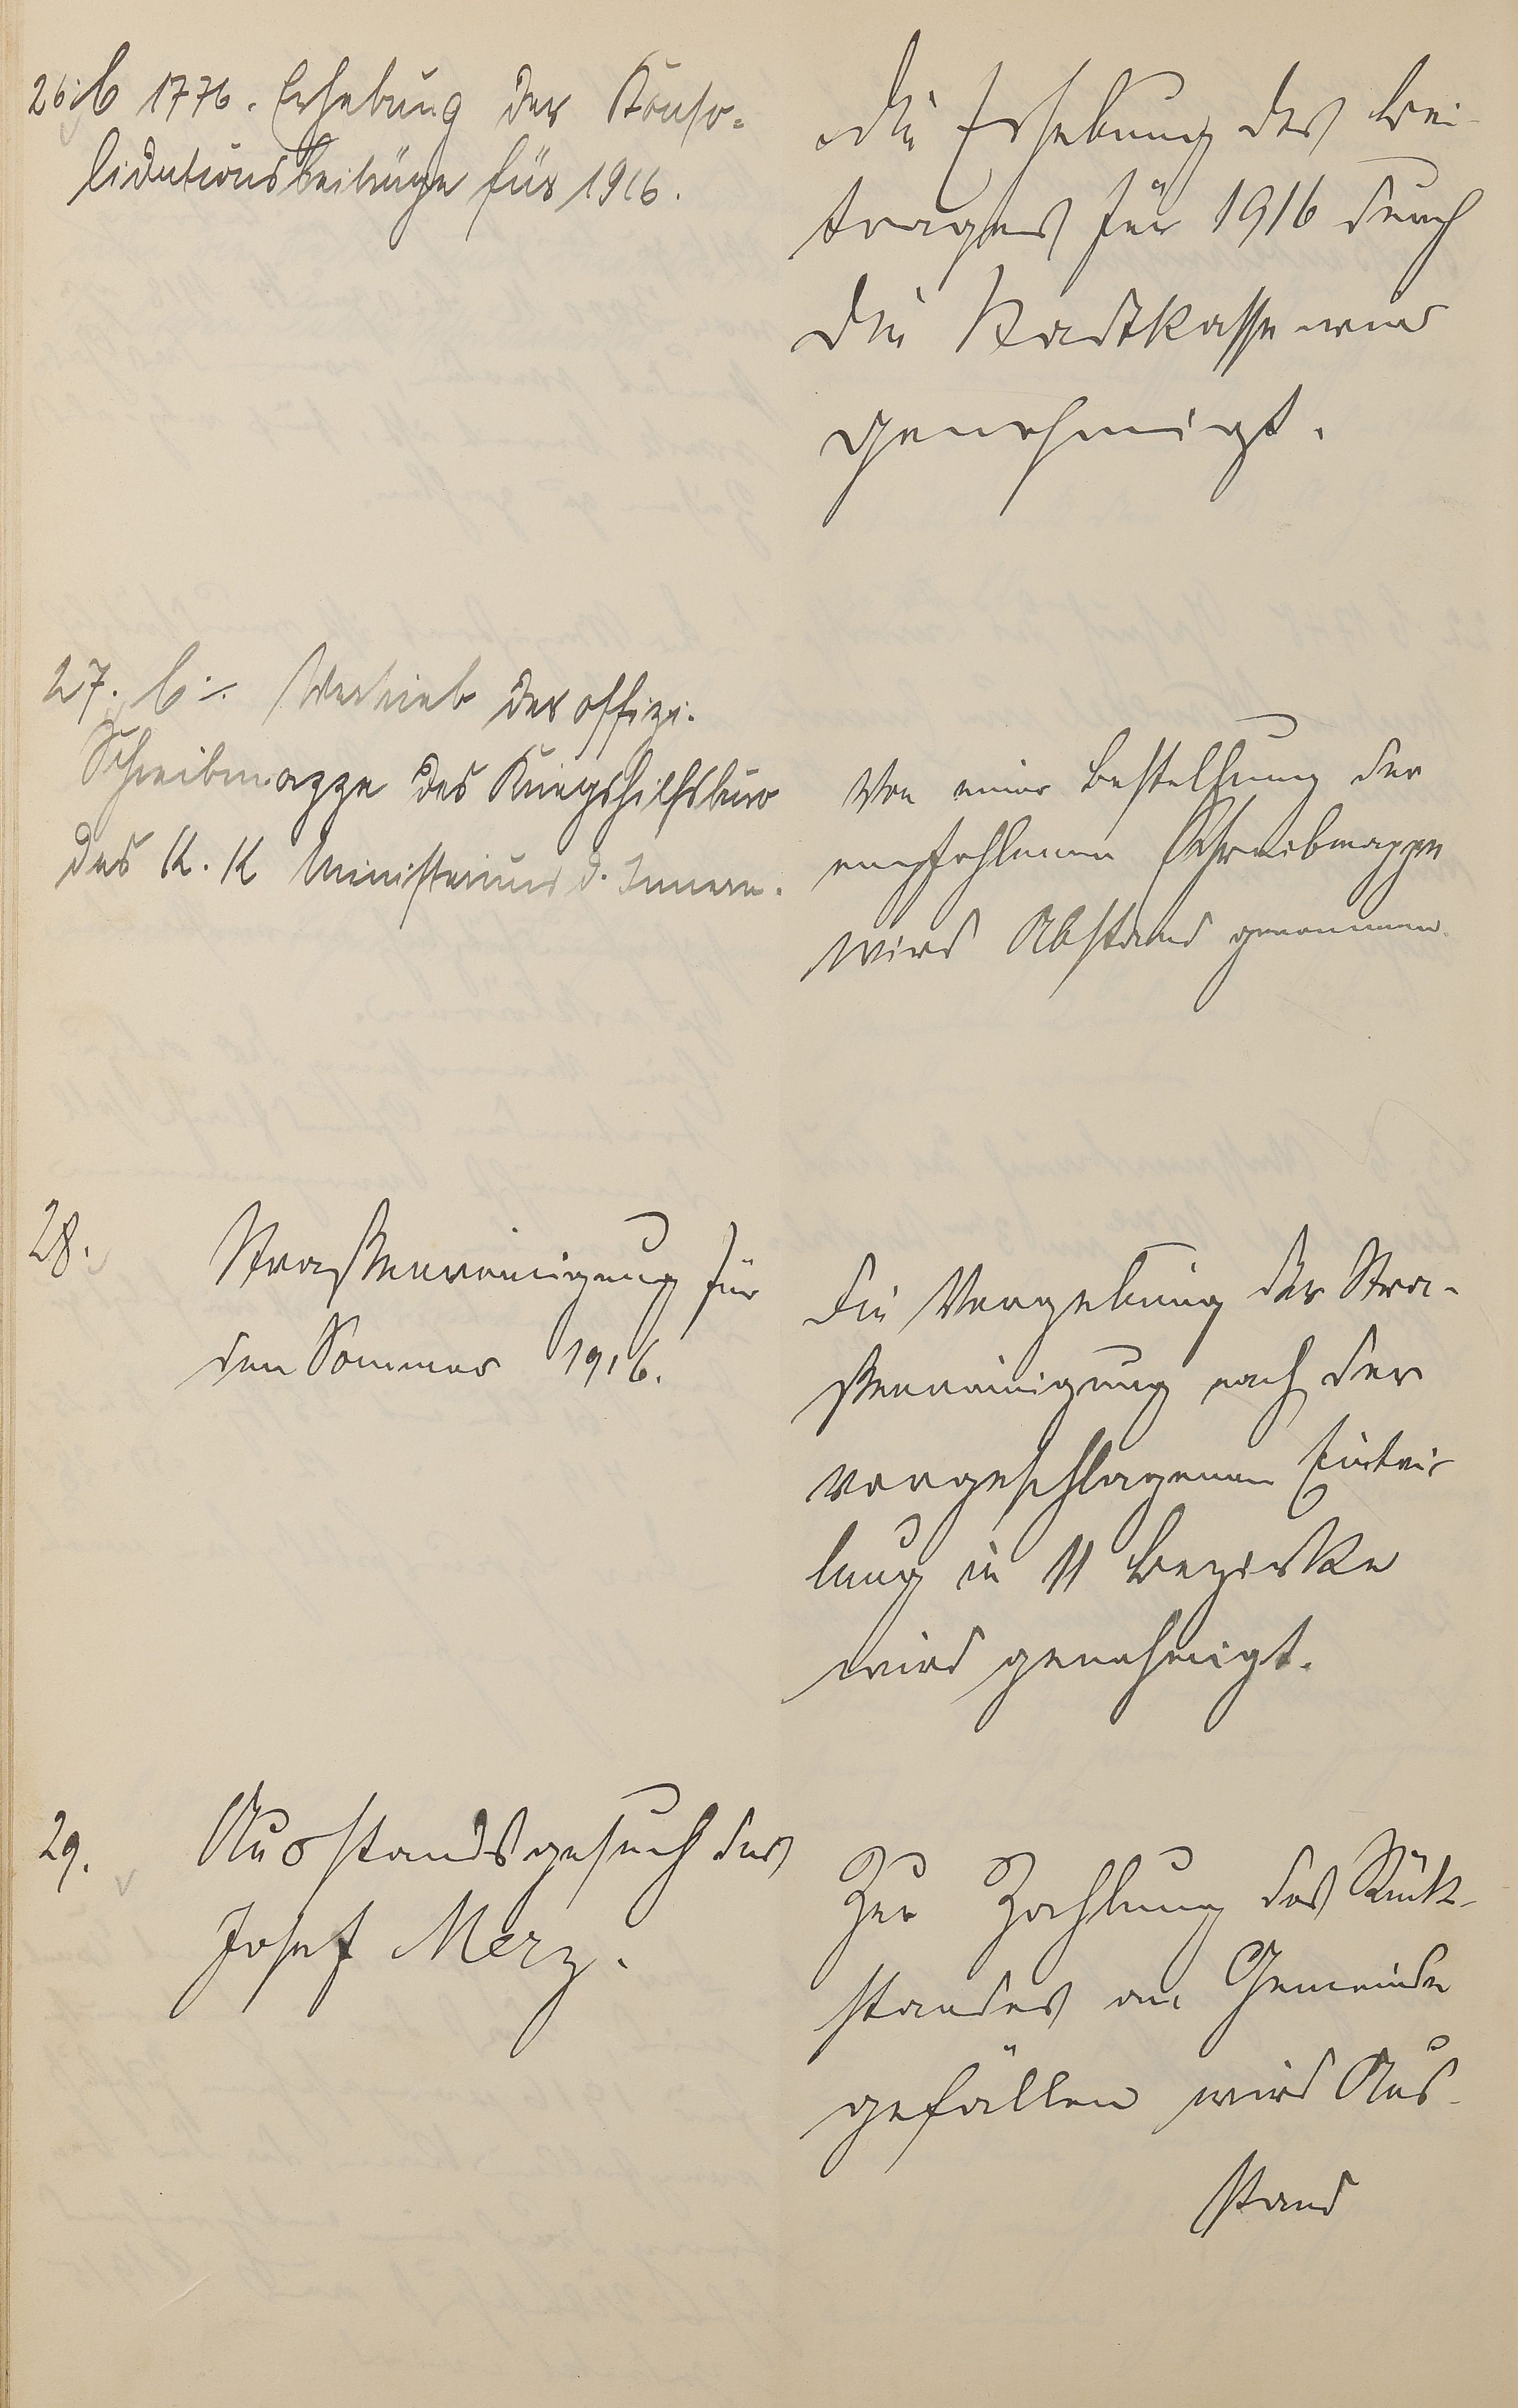 26. b 1776. Erhebung der Konso-
lidationsbeiträge für 1916.
Die Erhebung des Bei-
trages für 1916 durch
die Stadtkasse wird
genehmigt.
27. b ·/. Vertrieb der offizi.
Schreibmappe des Kriegshilfsbüro
des K. K Ministeriums d. Innern.
Von einer Bestellung der
empfohlenen Schreibmappe
wird Abstand genommen.
28. Straßenreinigung für
den Sommer 1916.
Die Vergebung der Stra-
ßenreinigung nach der
vorgeschlagenen Eintei-
lung in 11 Bezirke
wird genehmigt.
29. Ausstandsgesuch des
Josef Merz.
Zur Zahlung des Rück-
standes an Gemeinde
gefällen wird Aus-
stand